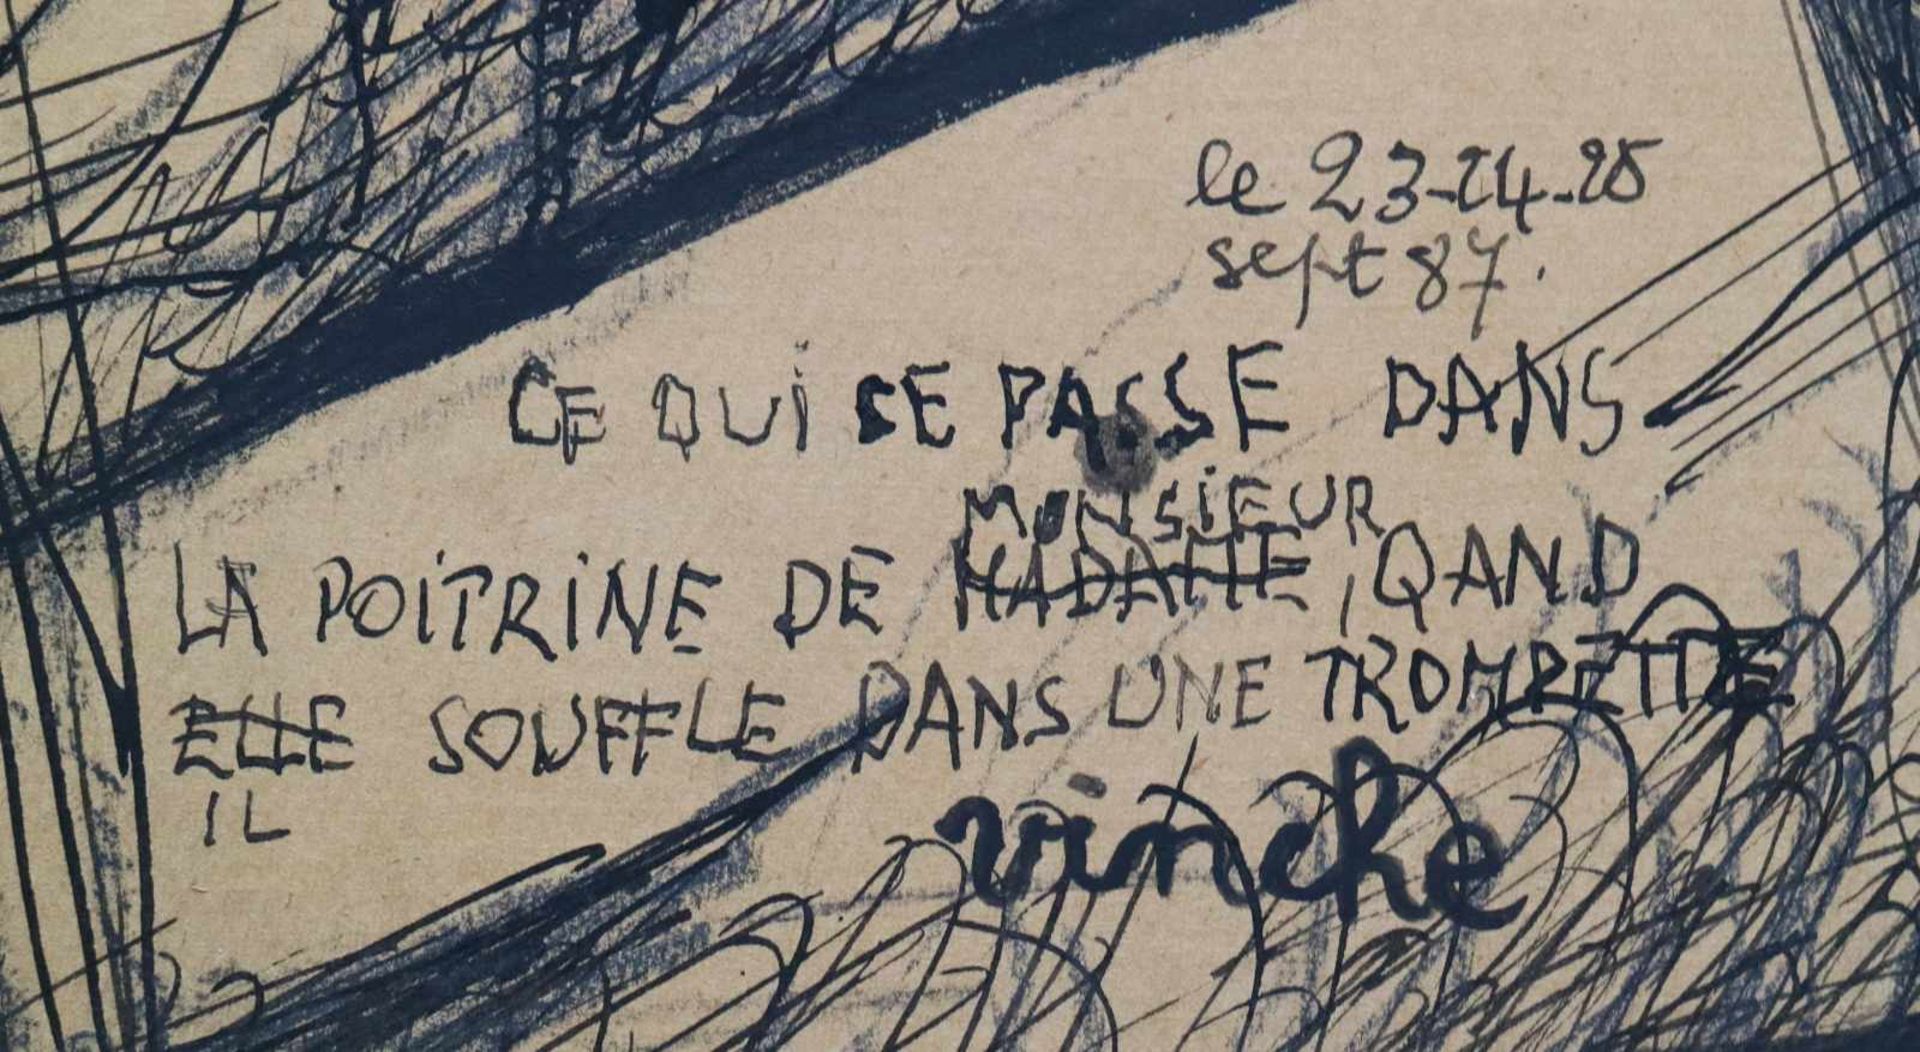 le 23-24-25
sept 87.
CE QUI SE PASSE DANS
MONSIEUR
LA POITRINE DE MADAME, QAND
ELLE SOUFFLE DANS UNE TROMPETTE
IL
vinche